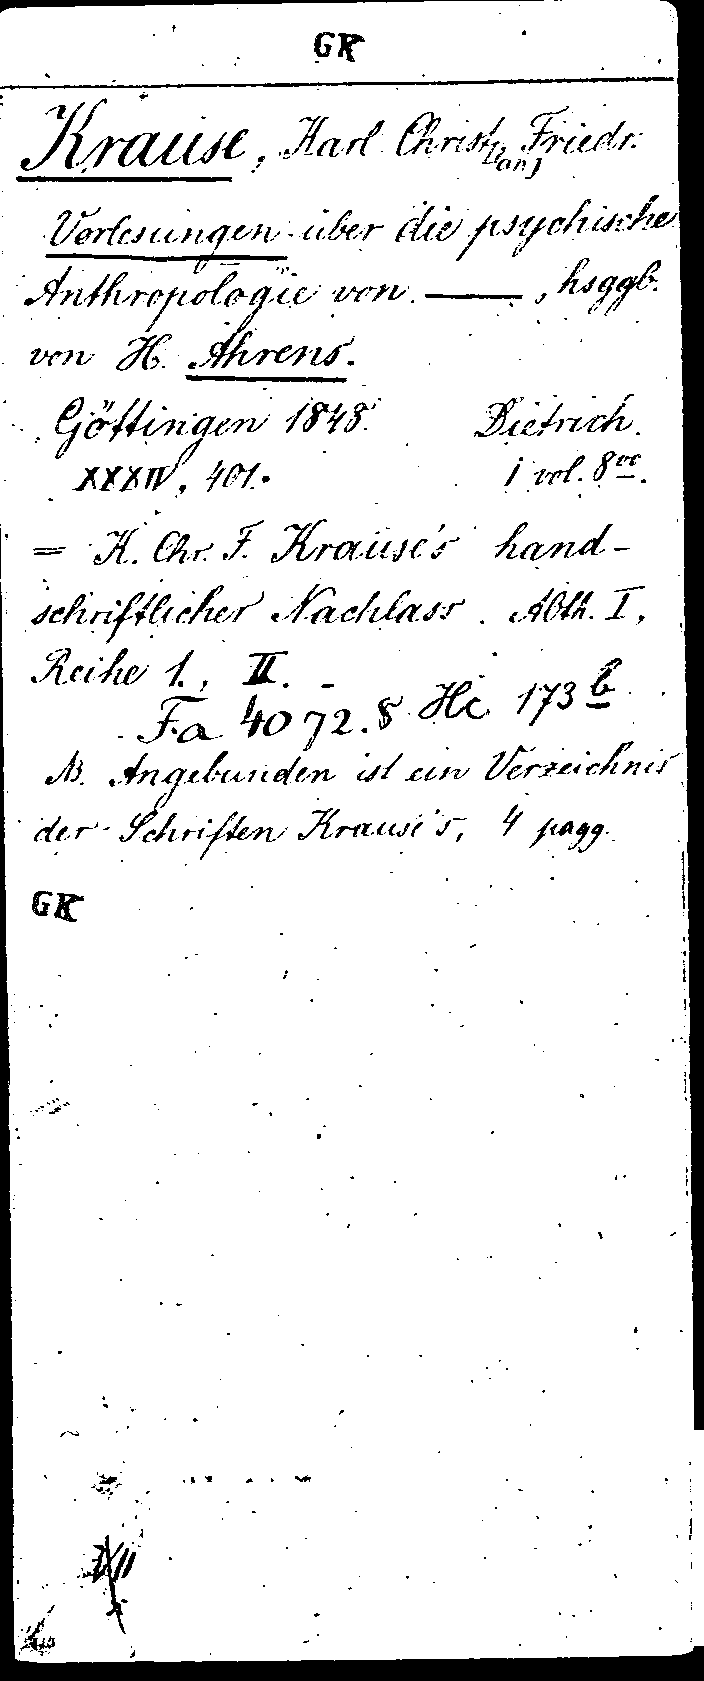 GK
Krause, Karl Christ[ian] Friedr.
Vorlesungen über die psychische
Anthropologie von ——, hsggb.
von H. Ahrens.
Göttingen 1848. Dietrich.
XXXIV, 401. 1 vol. 8vo.
= K. Chr. F. Krause's hand-
schriftlicher Nachlass. Abth. I,
Reihe 1., II. -
Fa 4072.8 Hc 173 b
NB. Angebunden ist ein Verzeichnis
der Schriften Krause's, 4 pagg.
GK